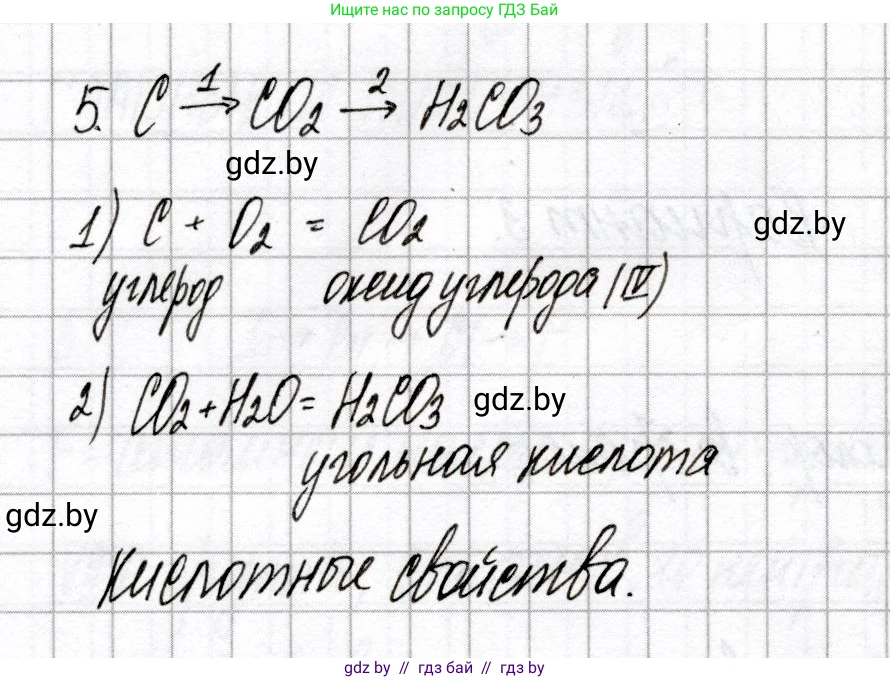 Ищите нас по запросу ГДЗ Бай
5. C 1→ CO2 2→ H2CO3
gdz.by
1) C + O2 = CO2
gdz.by
углерод оксид углерода (IV)
2) CO2 + H2O = H2CO3
gdz.by
угольная кислота
gdz.by
Кислотные свойства.
gdz.by // гдз бай // гдз by